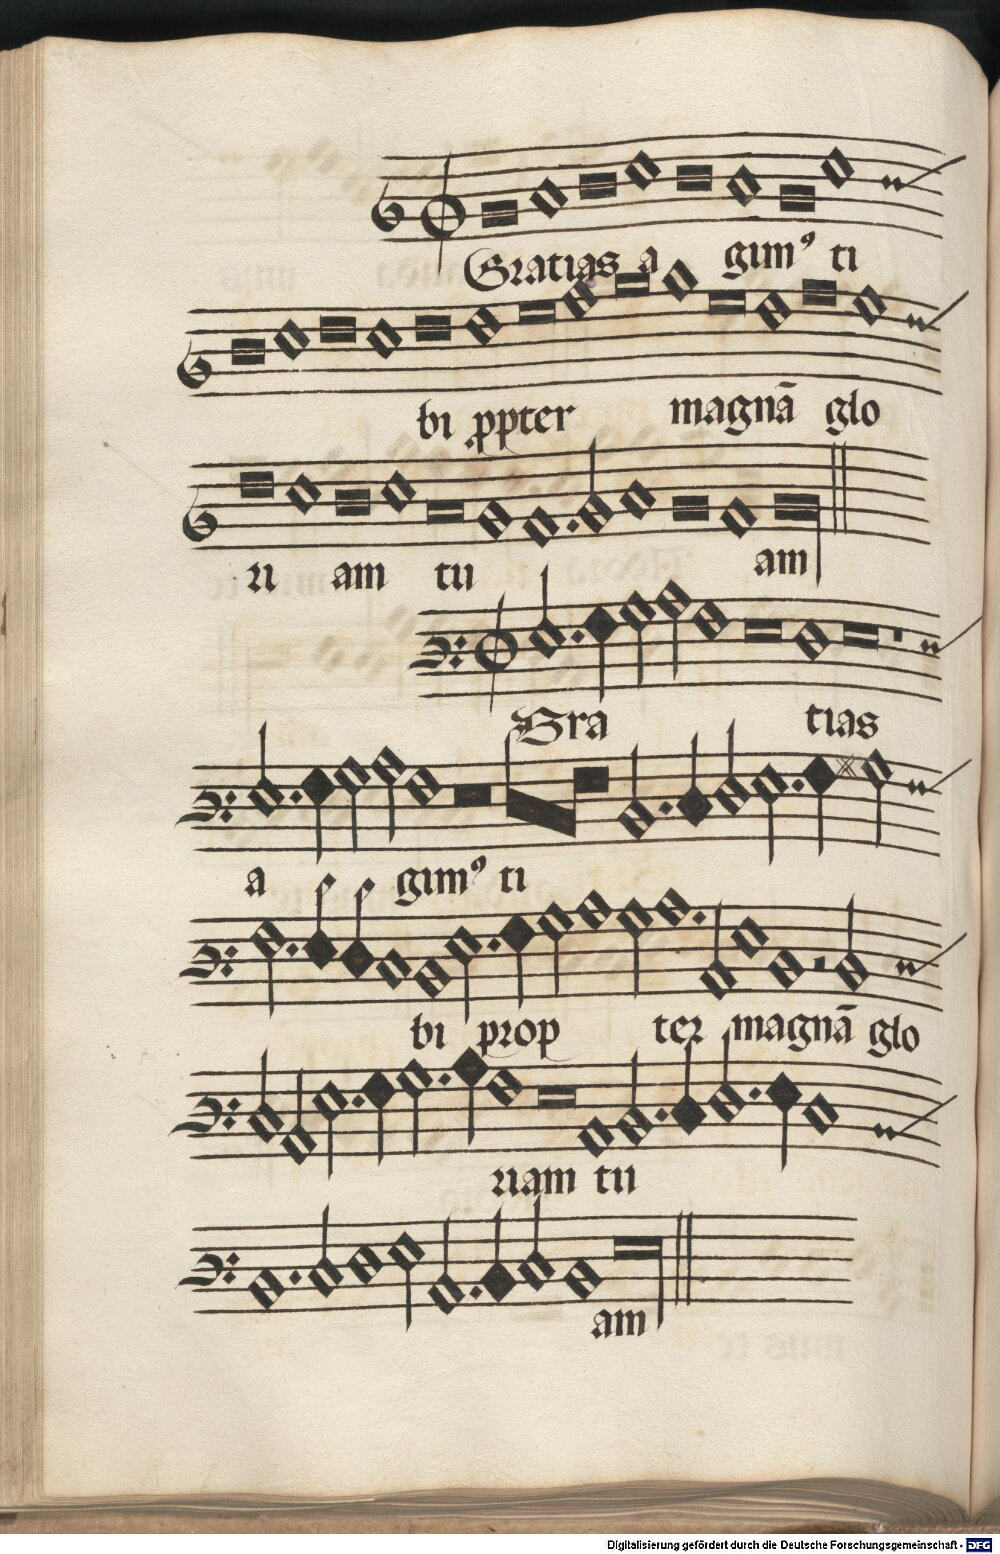 Gratias a gimꝰ ti
bi ꝓpter magnā glo
ri am tu am
Gra tias
a gimꝰ ti
bi prop ter magnā glo
riam tu
am
Digitalisierung gefördert durch die Deutsche Forschungsgemeinschaft - DFG